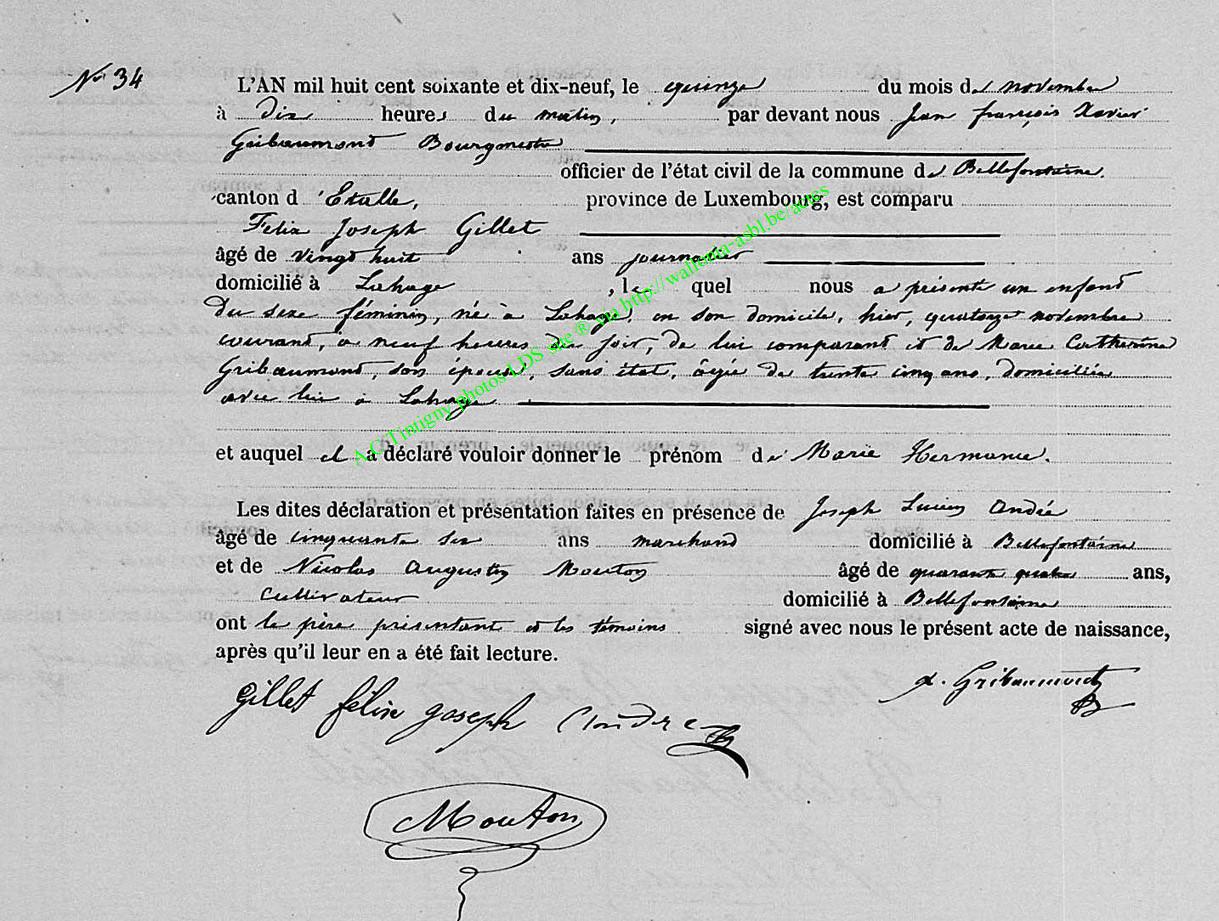 No 34
L'AN mil huit cent soixante et dix-neuf, le quinze du mois de novembre
à dix heures du matin, par devant nous Jean françois Xavier
Gribaumont Bourgmestre
officier de l'état civil de la commune de Bellefontaine.
canton d'Etalle, province de Luxembourg, est comparu
Felix Joseph Gillet
âgé de vingt huit ans journalier
domicilié à Lahage, lequel nous a présenté un enfant
du sexe féminin, né à Lahage, en son domicile, hier, quatorze novembre
courant, à neuf heures du soir, de lui comparant et de Marie Catherine
Gribaumont, son épouse, sans état, âgée de trente cinq ans, domiciliée
avec lui à Lahage
et auquel il a déclaré vouloir donner le prénom de Marie Hermance.
Les dites déclaration et présentation faites en présence de Joseph Lucien André
âgé de cinquante six ans marchand domicilié à Bellefontaine
et de Nicolas Augustin Mouton âgé de quarante quatre ans,
cultivateur domicilié à Bellefontaine
ont le père présentant et les témoins signé avec nous le présent acte de naissance,
après qu'il leur en a été fait lecture.
x. Gribaumont
Gillet félix joseph André
Mouton
A.C.Tintigny photos LDS site ® via http://wallonia-asbl.be/actes